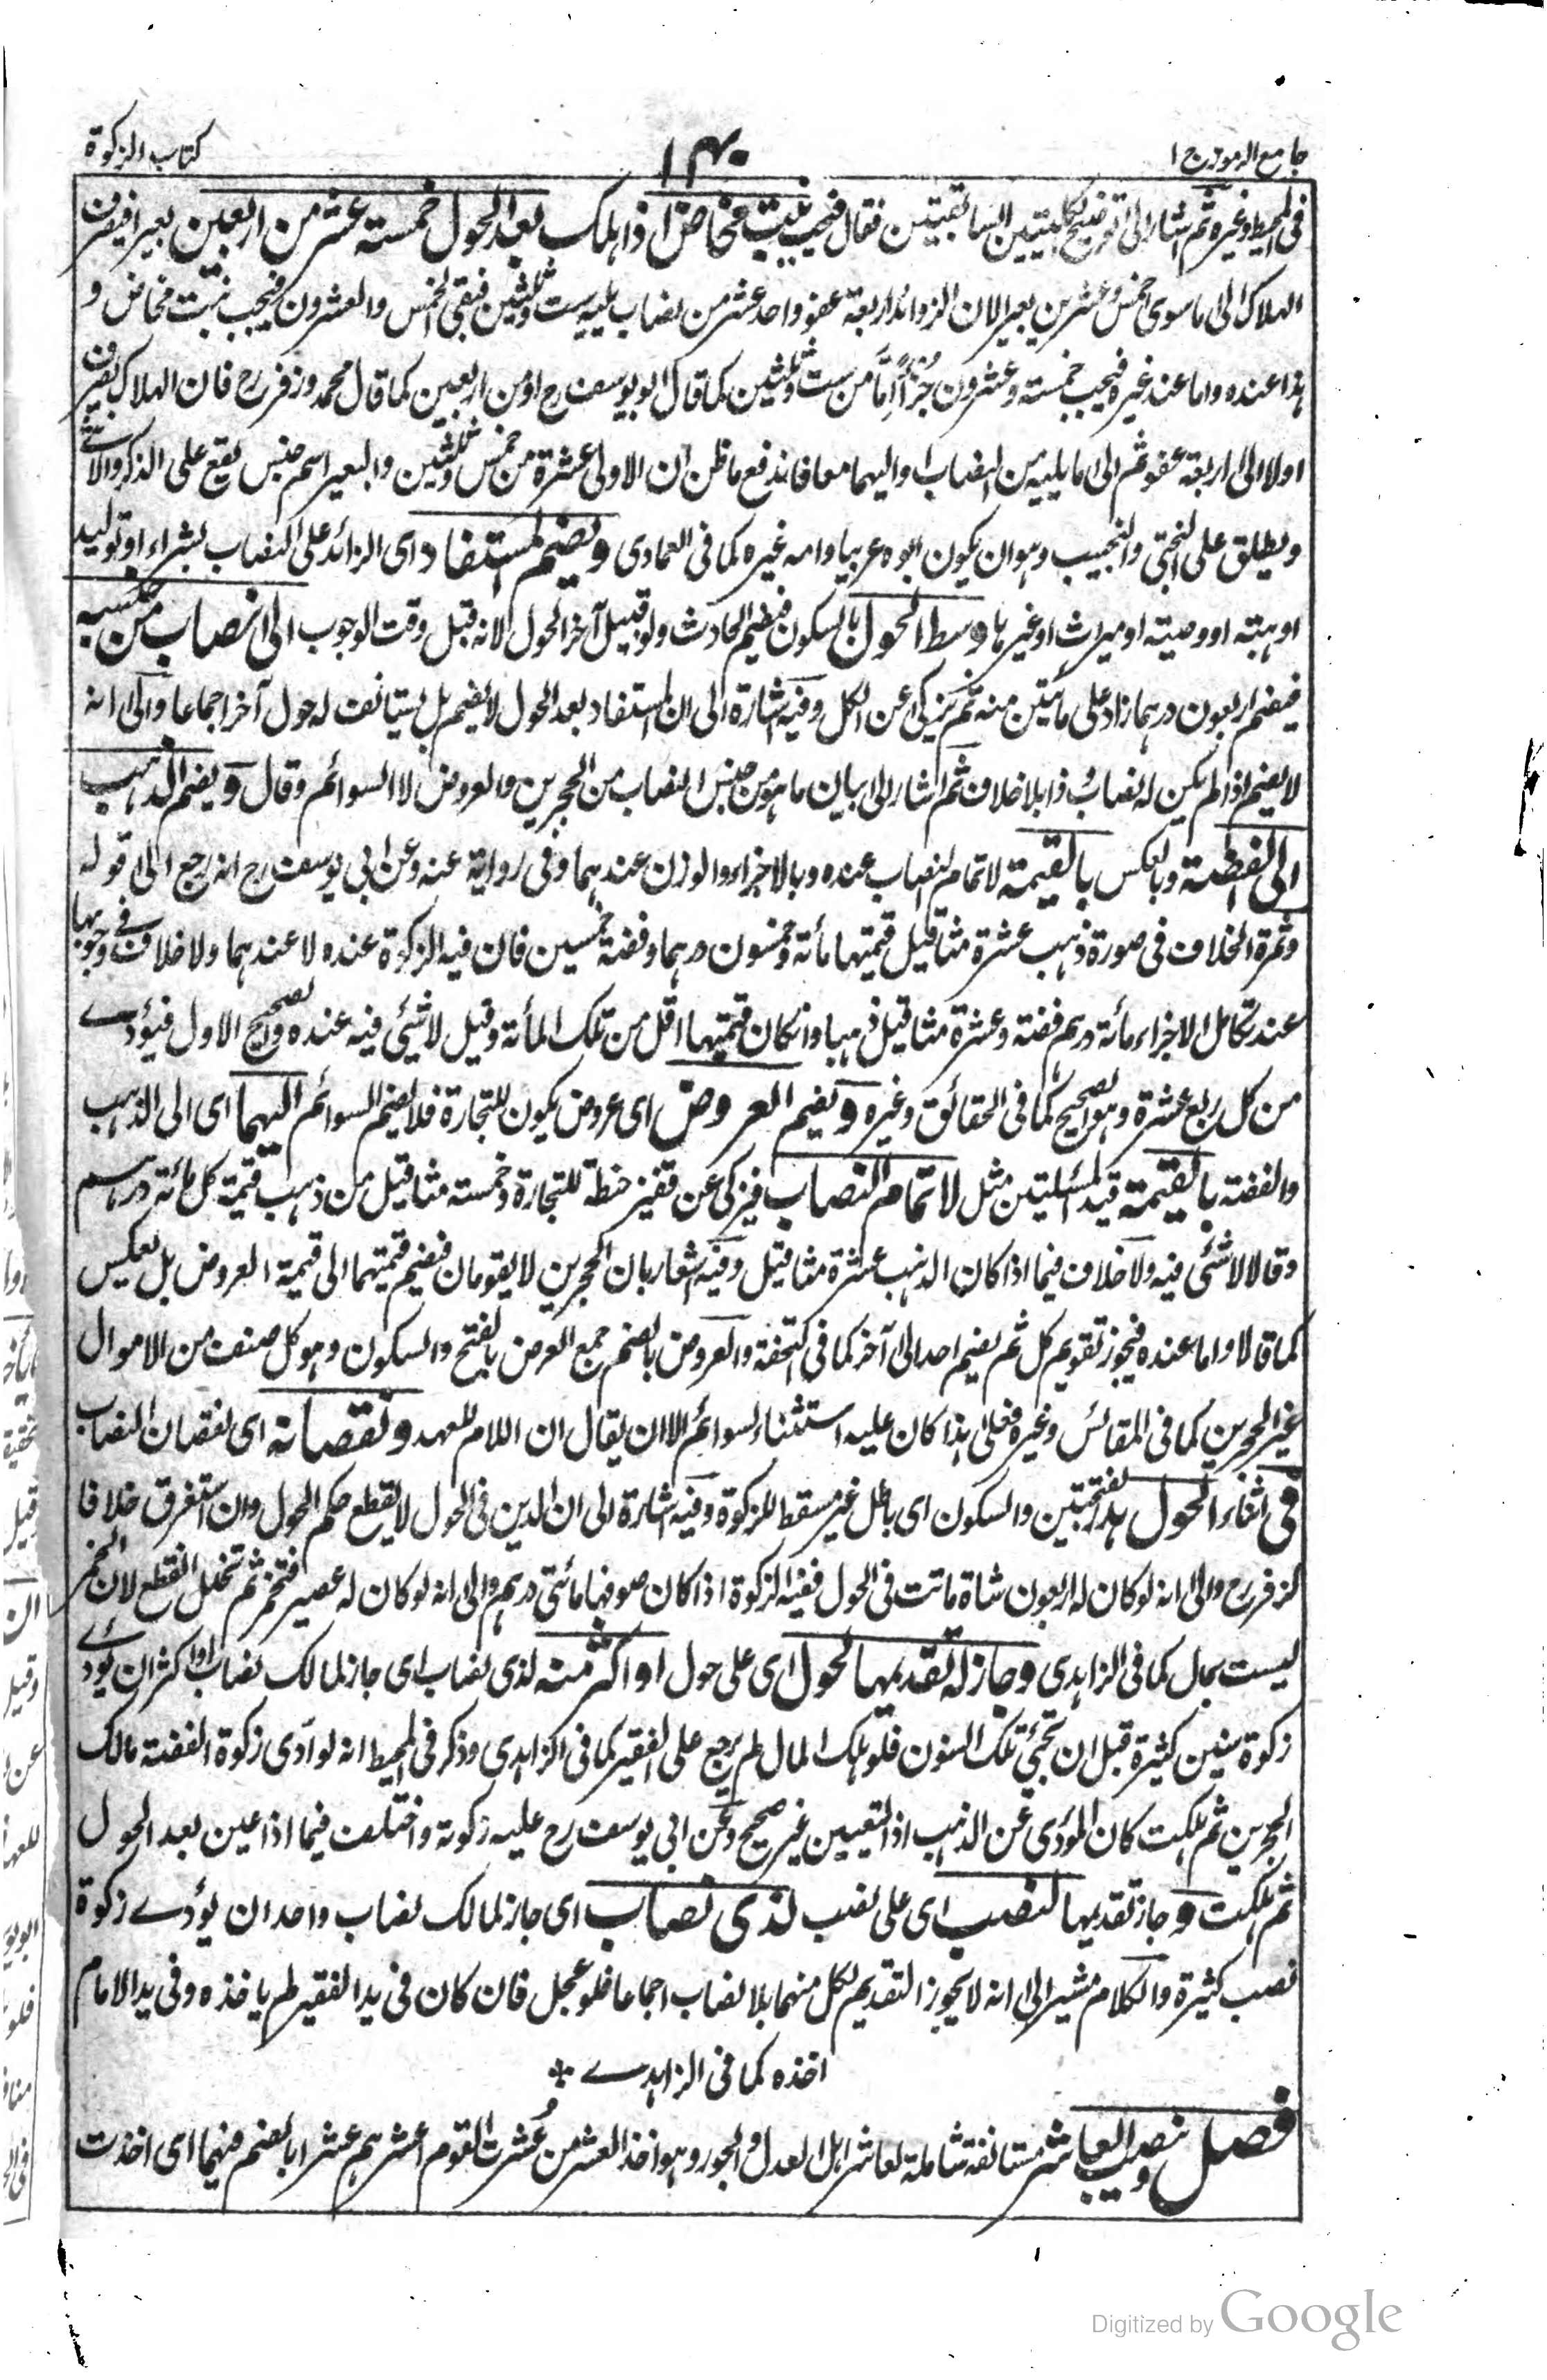 جامع الرموز ج ١
١٤٠
كتاب الزكوة
فى المحيط وغيره ثم اشار الى توضيح الحكمين السابقتين فقال فيجب بنت مخاض اذا هلك بعد الحول خمسة عشر من اربعين بعيرا فيصرف
الهلاك الى ما سوى خمس وعشرين بعيرا لان الزوائد اربعة عفو واحد عشر من نصاب يليه ست وثلثين فبقى الخمس والعشرون فيجب بنت مخاض و
هذا عنده واما عند غيره فيجب خمسة وعشرون جزأ اما من ست وثلثين كما قال ابو يوسف رح او من اربعين كما قال محمد وزفر رح فان الهلاك يصرف
اولا الى اربعة عفو ثم الى ما يليه من النصاب او اليهما معا فاندفع ما ظن ان الاولى عشرة من خمس وثلثين والبعير اسم جنس يقع على الذكر والانثى
ويطلق على البختى والنجيب وهو ان يكون ابوه عربيا وامه غيره كما فى العمادى ويضم المستفاد اى الزائد على النصاب بشراء او توليد
او هبته او وصيته او ميراث او غيرها وسط الحول بالسكون فيضم الحادث ولو قبيل آخر الحول لانه قبل وقت الوجوب الى نصاب من جنسه
فيضم اربعون درهما زاد على مأتين منه ثم يزكى عن الكل وفيه اشارة الى ان المستفاد بعد الحول لا يضم بل يستانف له حول آخر اجماعا والى انه
لا يضم اذا لم يكن له نصاب وذا بلا خلاف ثم اشار الى بيان ما هو من جنس النصاب من الحجرين والعروض لا السوائم وقال ويضم الذهب
الى الفضة وبالعكس بالقيمة لاتمام النصاب عنده وبالاجزاء والوزن عندهما وفى رواية عنه وعن ابى يوسف رح انه رجع الى قوله
وثمرة الخلاف فى صورة ذهب عشرة مثاقيل قيمتها مأئة وخمسون درهما وفضة خمسين فان فيه الزكوة عنده لا عندهما ولا خلاف فى وجوبها
عند تكامل الاجزاء مأئة درهم فضة وعشرة مثاقيل ذهبا وان كان قيمتها اقل من تلك المأئة وقيل لا شئى فيه عنده والصحيح الاول فيؤدى
من كل ربع عشرة وهو الصحيح كما فى الحقائق وغيره ويضم العروض اى عروض يكون للتجارة فلا يضم السوائم اليهما اى الى الذهب
والفضة بالقيمة قيد المسئلتين مثل لاتمام النصاب فيزكى عن قفيز حنطة للتجارة وخمسة مثاقيل من ذهب قيمة كل مأئة درهم
وقالا لا شئى فيه ولا خلاف فيما اذا كان الذهب عشرة مثاقيل وفيه اشعار بان الحجرين لا يقومان فيضم قيمتهما الى قيمة العروض بل بعكس
كما قالا واما عنده فيجوز تقويم كل ثم يضم احد الى آخر كما فى التحفة والعروض بالضم جمع العرض بالفتح والسكون وهو كل صنف من الاموال
غير الحجرين كما فى المقائس وغيره فعلى هذا كان عليه استثناء السوائم الا ان يقال ان اللام للعهد ونقصانه اى نقصان النصاب
فى اثناء الحول هدر بفتحتين والسكون اى باطل غير مسقط للزكوة وفيه اشارة الى ان الدين فى الحول لا يقطع حكم الحول وان استغرق خلافا
لزفر رح والى انه لو كان له اربعون شاة ماتت فى الحول ففيه الزكوة اذا كان صوفها مأتى درهم والى انه لو كان له عصير فتخمر ثم تخلل انقطع لان الخمر
ليست بمال كما فى الزاهدى وجاز له تقديمها لحول اى على حول او اكثر منه لذى نصاب اى جاز لمالك نصاب او اكثر ان يؤدى
زكوة سنين كثيرة قبل ان تجئ تلك السنون فلو هلك المال لم يرجع على الفقير كما فى الزاهدى وذكر فى المحيط انه لو ادى زكوة الفضة مالك
الحجرين ثم هلكت كان المؤدى عن الذهب اذ التعيين غير صحيح وعن ابى يوسف رح عليه زكوته واختلف فيما اذا عين بعد الحول
ثم هلكت وجاز تقديمها لنصب اى على نصب لذى نصاب اى جاز لمالك نصاب واحد ان يؤدى زكوة
نصب كثيرة والكلام مشير الى انه لا يجوز التقديم لكل منهما بلا نصاب اجماعا فلو عجل فان كان فى يد الفقير لم ياخذه وفى يد الامام
اخذه كما فى الزاهدے *
فصل ونصب العاشر مستانفة شاملة لعاشر اهل العدل والجور وهو اخذ العشر من عشرت القوم اعشرهم عشرا بالضم فيهما اى اخذت
Digitized by Google